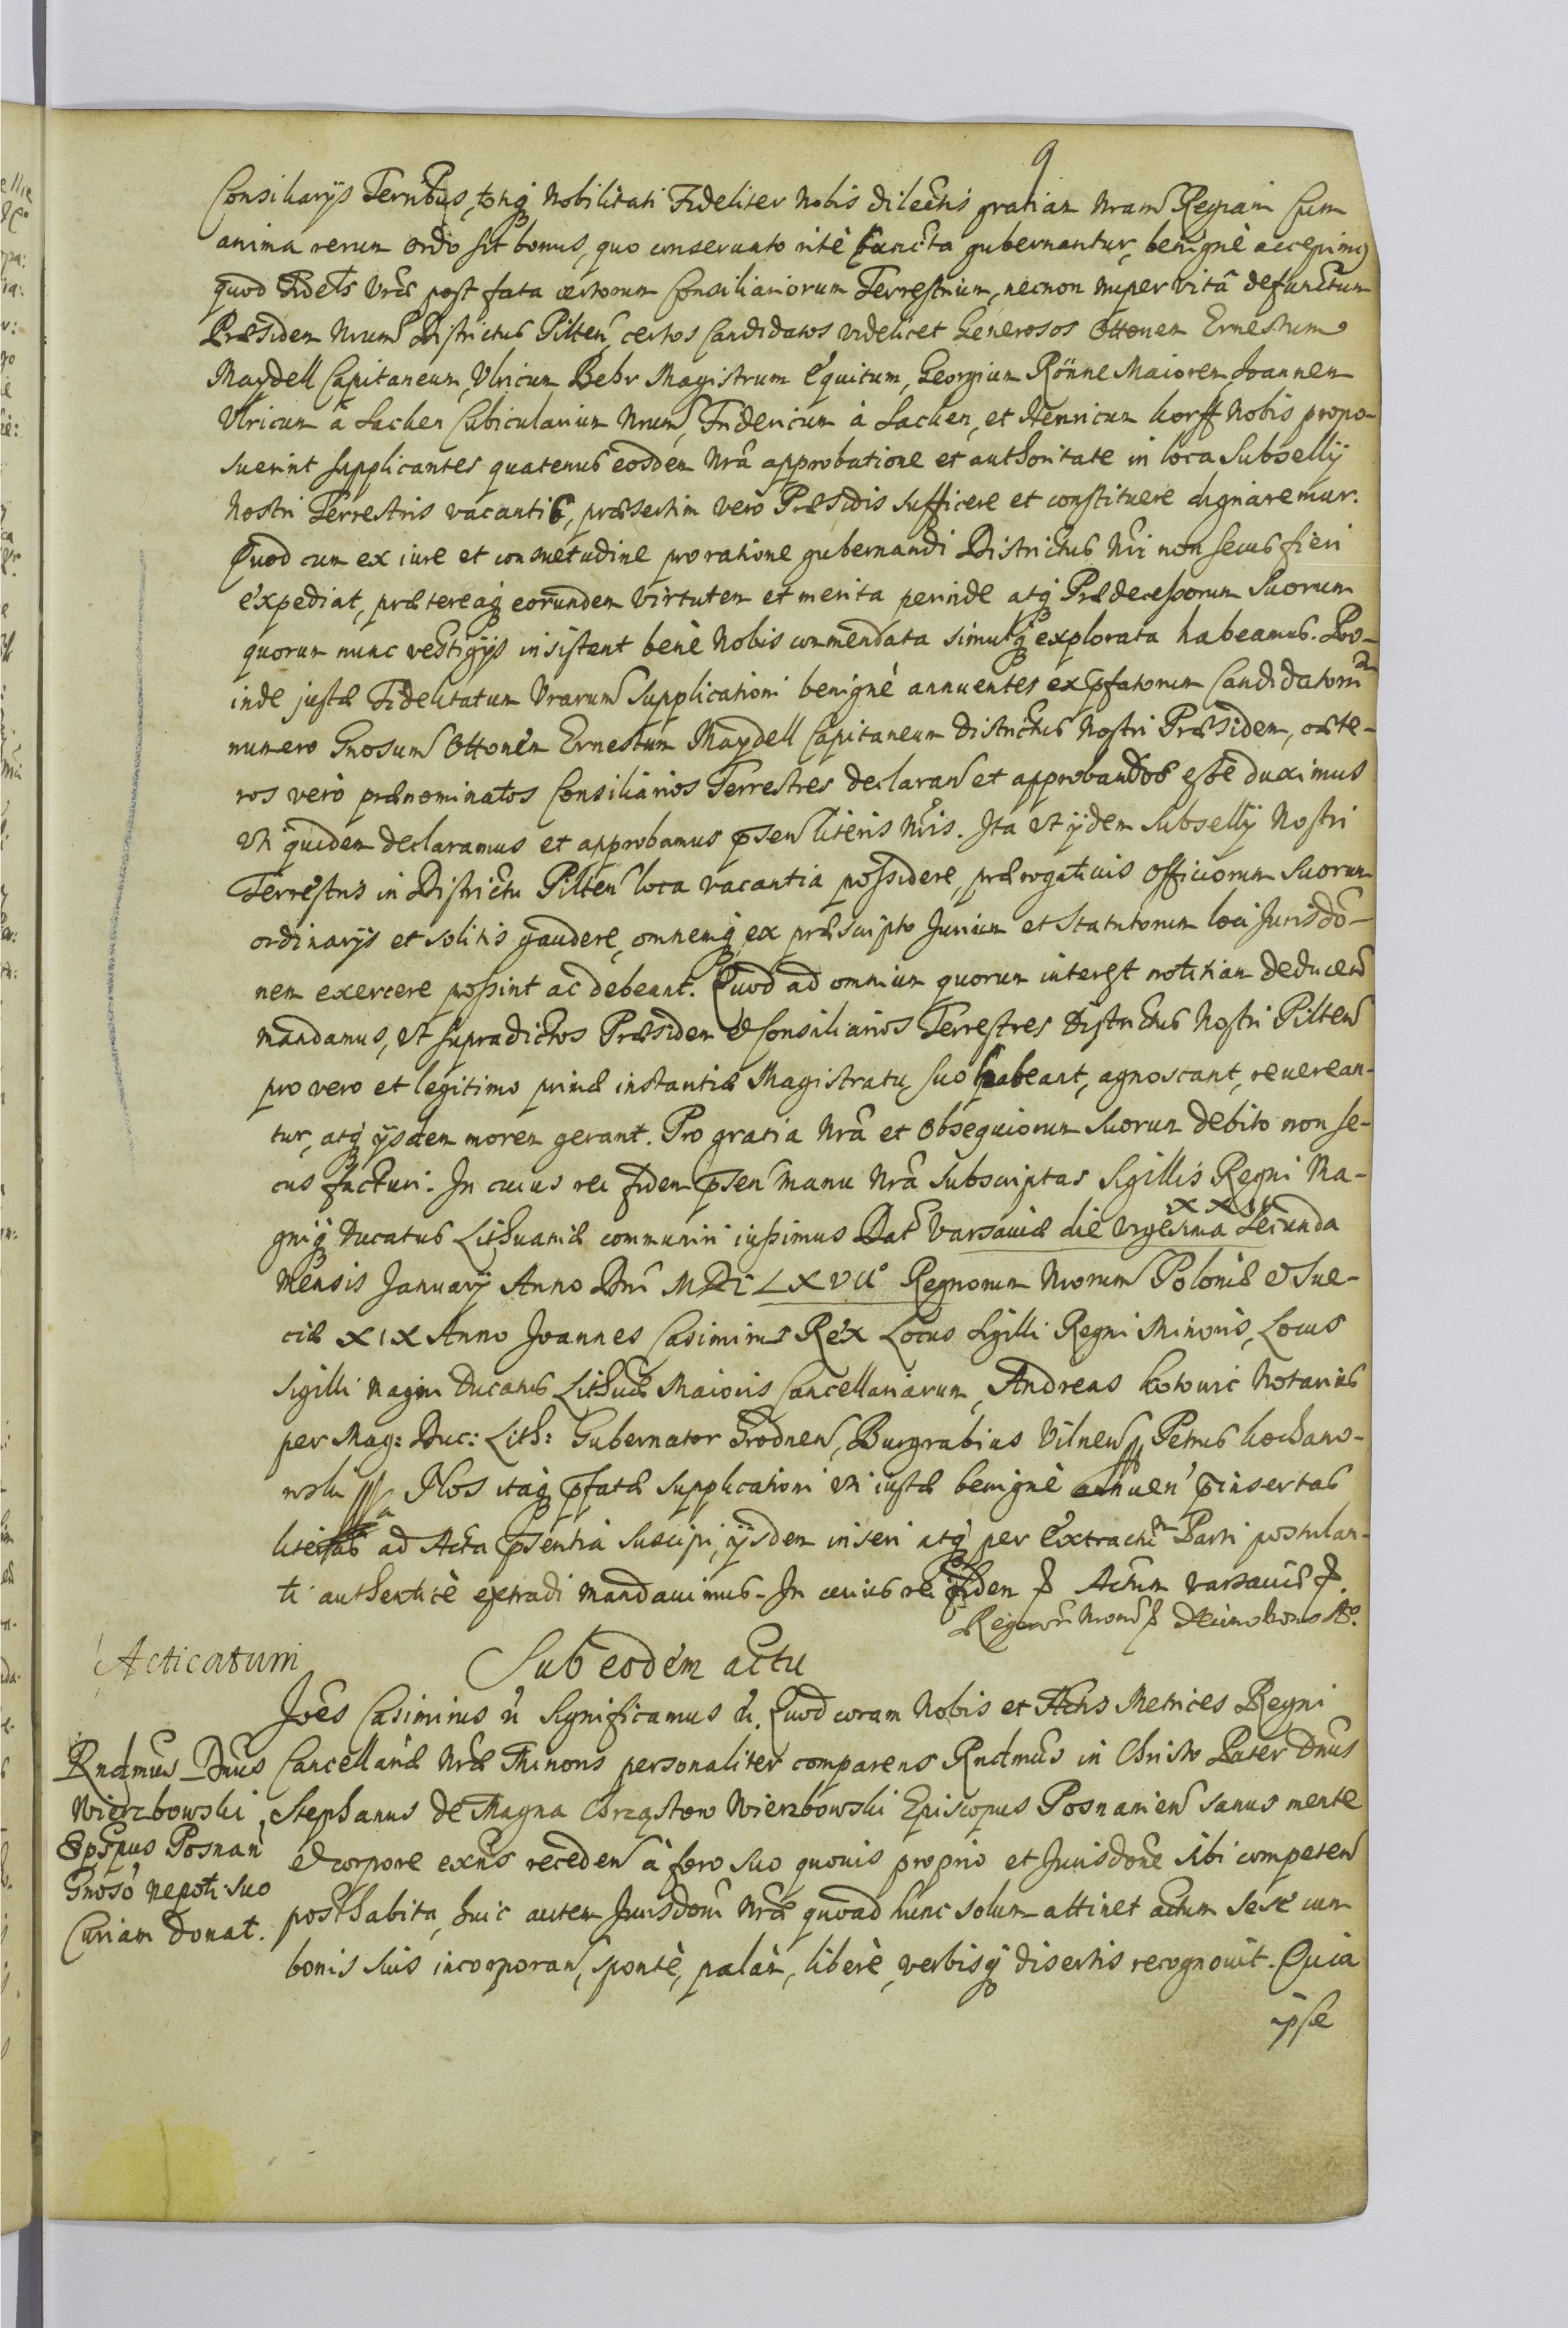 9
Consiliarÿs Terribus, totiq Nobilitati Fideliter Nobis dilectis gratiam Nram Regiam Cum
anima rerum ordo sit bonus, quo conseruato ritè cuncta gubernantur, benignè accepimus
quod Fidelts Vrae post fata certorum Consiliariorum Terrestrium, necnon nuper vitâ defunctum
Praesidem Nrum Districtus Pilten, certos Candidatos videlicet Generosos Ottonem Ernestum
Maydell Capitaneum, Vlricum Behr Magistrum Equitum, Georgium Rönne Maiorem, Joannem
Vlricum à Sacken Cubicularium Nrum, Fridericum à Sacken, et Henricum Korff Nobis propo-
suerint supplicantes quatenus eosdem Nrâ approbatione et authoritate in loca Subsellÿ
Nostri Terrestris vacantia, praesertim vero Praesidis sufficere et constituere dignaremur.
Quod cum ex iure et consuetudine pro ratione gubernandi Districtus Nri non secus fieri
expediat, praetereaq eorundem virtutem et merita perinde atq Praedecessorum Suorum
quorum nunc vestigÿs insistent benè Nobis commendata simulq explorata habeamus. Pro-
inde justae Fidelitatum Vrarum supplicationi benignè annuentes ex pfatorum Candidatorum
numero Gnosum Ottonem Ernestum Maydell Capitaneum Districtus Nostri Praesidem, caete-
ros verò praenominatos Consiliarios Terrestres declaran et approbandos esse duximus
Vti quidem declaramus et approbamus psen literis Nris. Ita vt ÿdem Subsellÿ Nostri
Terrestris in Districtu Pilten loca vacantia possidere, praerogatiuis Officiorum Suorum
ordinarÿs et solitis gaudere, omnemq ex praescripto Jurium et Statutorum loci Jurisdo-
nem exercere possint ac debeant. Quod ad omnium quorum interest notitiam deducen
mandamus, vt supradictos Praesidem et Consiliarios Terrestres Districtus Nostri Pilten
pro vero et legitimo primae instantiae Magistratu, suo habeant, agnoscant, reuerean-
tur, atq ÿsdem morem gerant. Pro gratia Nrâ et Obsequiorum Suorum debito non se-
cus facturi. In cuius rei fidem psen manu Nrâ subscriptas Sigillis Regni Ma-
XXII
gniq Ducatus Lithuaniae communiri iussimus Dat Varsauiae die vigesima Secunda
Mensis Januarÿ Anno Dni MDCLXVIIo Regnorum Nrorum Poloniae et Sue-
ciae XIX Anno Joannes Casimirus Rex Locus Sigilli Regni Minoris, Locus
Sigilli Magni Ducatus Lithuae Maioris Cancellariarum, Andreas Kotowic Notarius
per Mag: Duc: Lith: Gubernator Grodnen, Burgrabius Vilnen Petrus Kochano-
wski Nos itaq pfatae supplicationi vti iustae benignè annuen pinsertas
literas ad Acta psentia suscipi, ÿsdem inseri atq per Extractum Parti postulan-
ti authenticè extradi mandauimus. In cuius rei fidem Actum Varsauiae
Regnorum Nrorum Decimo Nono Ao.
Acticatum
Sub eodem actu
Joes Casimirus Significamus. Quod coram Nobis et Actis Metrices Regni
Rndmus Dnus
Wierzbowski,
Epspus Posnan
Gnoso Nepoti suo
Curiam donat.
Cancellariae Nrae Minoris personaliter comparens Rndmus in Christo Pater Dnus
Stephanus de Magna Chrząstow Wierzbowski Episcopus Posnanien sanus mente
et corpore exns receden à foro suo quouis proprio et Jurisdone sibi competen
posthabita, huic autem Jurisdoni Nrae quoad hunc solum attinet actum sese cum
bonis suis incorporan, spontè, palàm, liberè, verbisq disertis recognouit. Quia
ipse